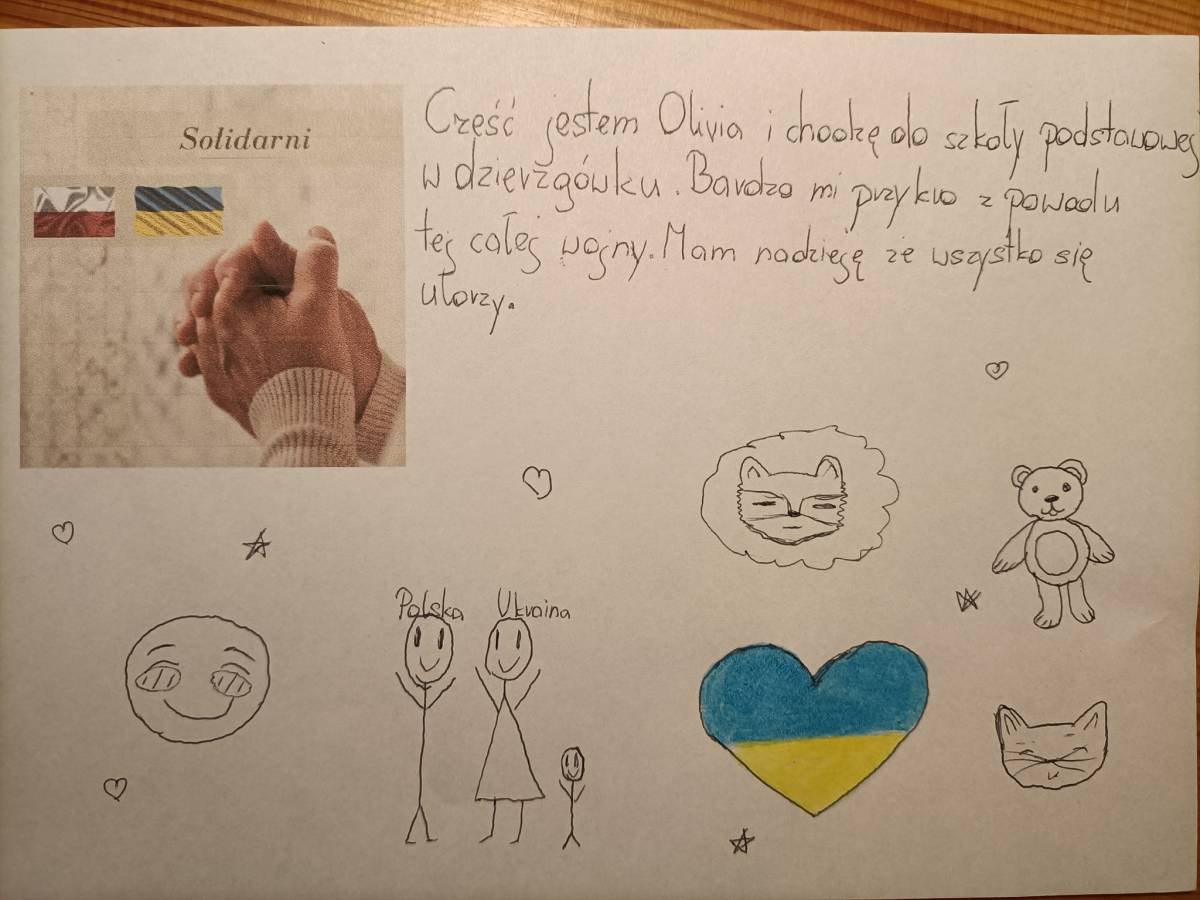 Solidarni
Cześć jestem Olivia i chodzę do szkoły podstawowej
w dzierzgówku. Bardzo mi przykro z powodu
tej całej wojny. Mam nadzieję że wszystko się
ułorzy.
Polska Ukraina